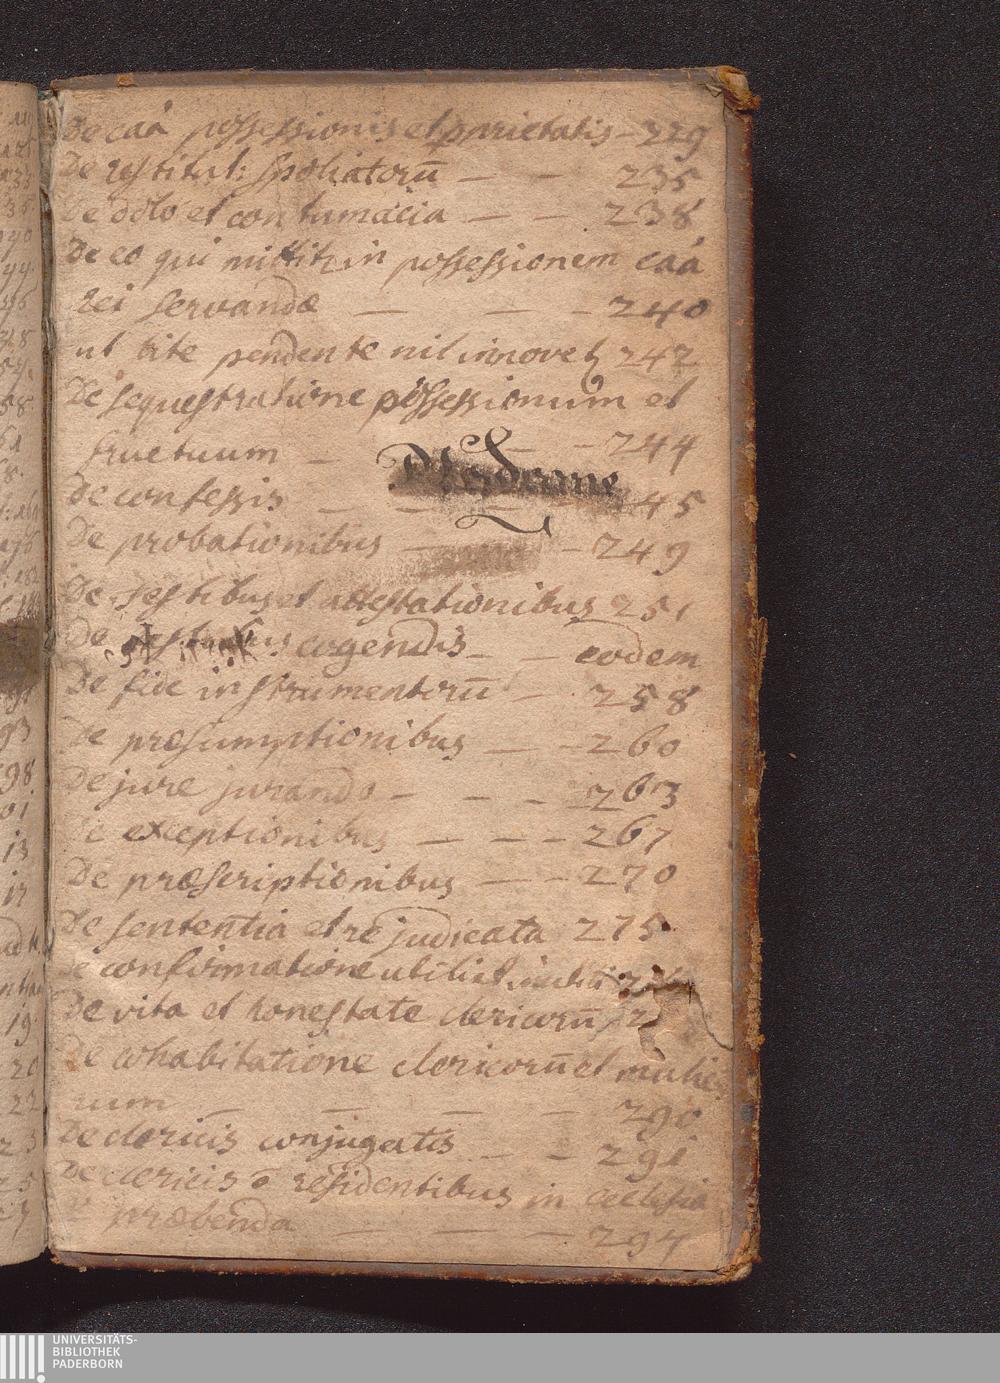 De caâ possessionis et prorietatis - 229
De restitut: spoliatorū — — 235
De dolo et contumacia — — 238
De eo qui mittitz in possessionem caâ
rei servandæ — — — 240
ut lite pendente nil innovetz 242
De sequestratione possessionum et
fructuum — — 244
De confessis — — 45
De probationibus — — 249
De testibus et attestationibus 251
De testibus cogendis — — eodem
De fide instrumentorū — 258
De præsumptionibus — — 260
De jure jurando — — — 263
De exceptionibus — — — 267
De præscriptionibus — — 270
De sententia et re judicata 275
De confirmatione utili et
De vita et honestate clericorū
De cohabitatione clericorū et mulie
rum — — — — 290
De clericis conjugatis — — 291
De clericis ō residentibus in ecclesia
præbenda — — — 294
UNIVERSITÄTS-
BIBLIOTHEK
PADERBORN